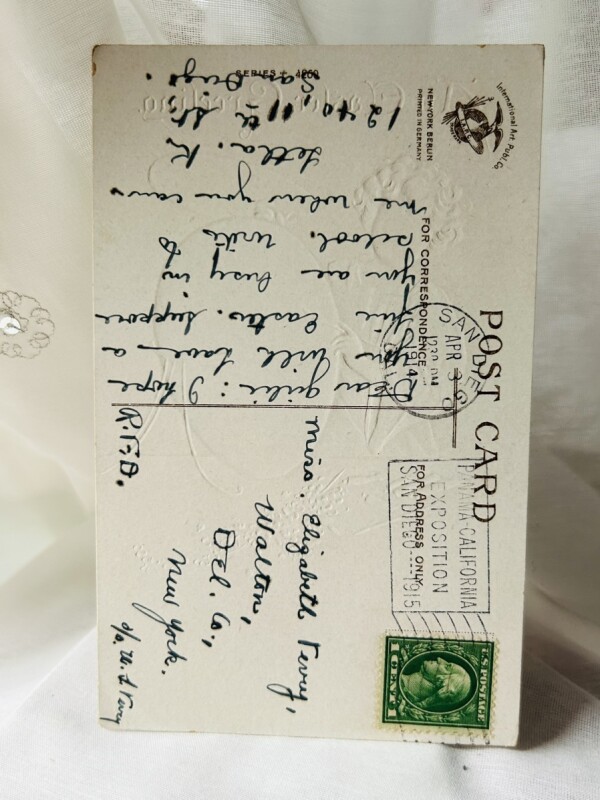 POST CARD
International Art Publ. Co.
NEW-YORK BERLIN
PRINTED IN GERMANY
FOR CORRESPONDENCE
FOR ADDRESS ONLY
SERIES
SAN DIEGO
APR 3
1230 PM
1914
PANAMA-CALIFORNIA
EXPOSITION
SAN DIEGO---1915
U.S. POSTAGE
1 CENT 1
Dear girlie: I hope
you will have a
Easter. Suppose
you are busy in
school. Write to
me when you can.
Letha. K
1240, 11th St.
San Diego.
Miss. Elizabeth Terry,
Walton,
Del. Co.,
New York.
R.F.D.
c/o. W. S Terry